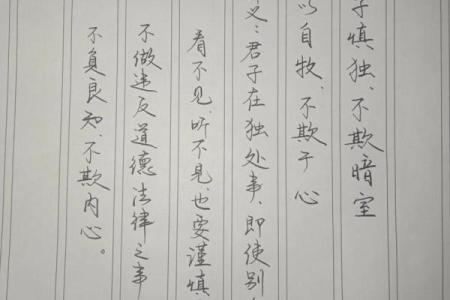 子慎独、不欺暗室
以自牧、不欺于心
义：君子在独处事、即使别
看不见、听不见、也要谨慎
不做违反道德法律之事
不负良知、不欺内心。